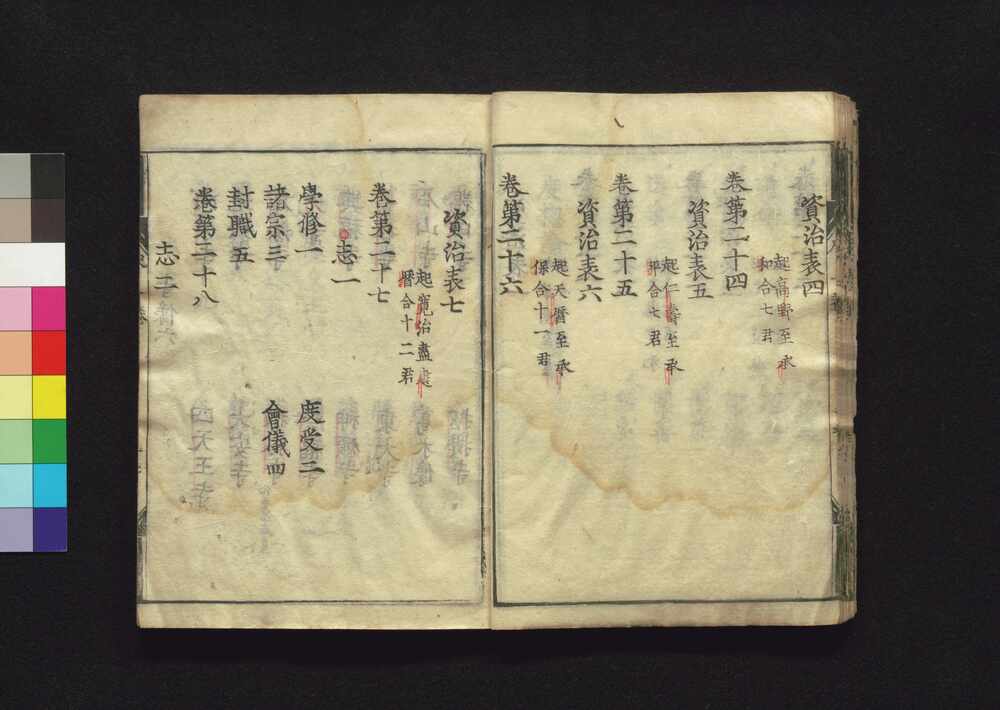 資治表四
起高野至承
和合七君
卷第二十四
資治表五
起仁壽至承
平合七君
卷第二十五
資治表六
起天曆至承
保合十一君
卷第二十六
資治表七
起寬治盡建
曆合十二君
卷第二十七
志一
學修一 度受二
諸宗三 會儀四
封職五
卷第二十八
志二